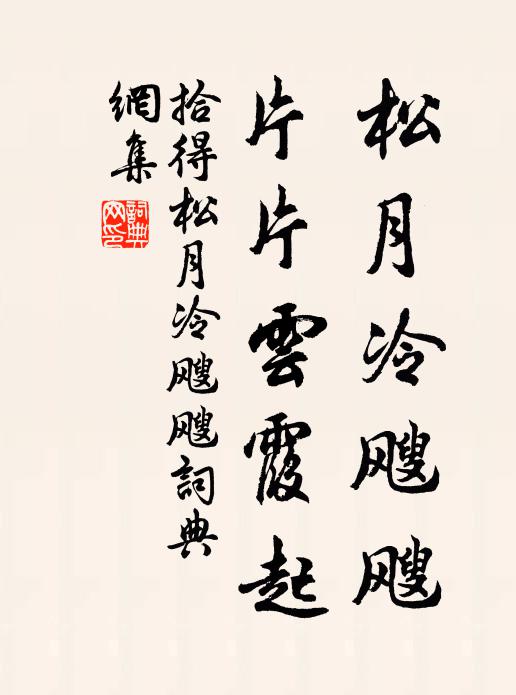 松月冷飕飕
片片雲霞起
拾得松月冷飕飕詞典
網集
詞典网印